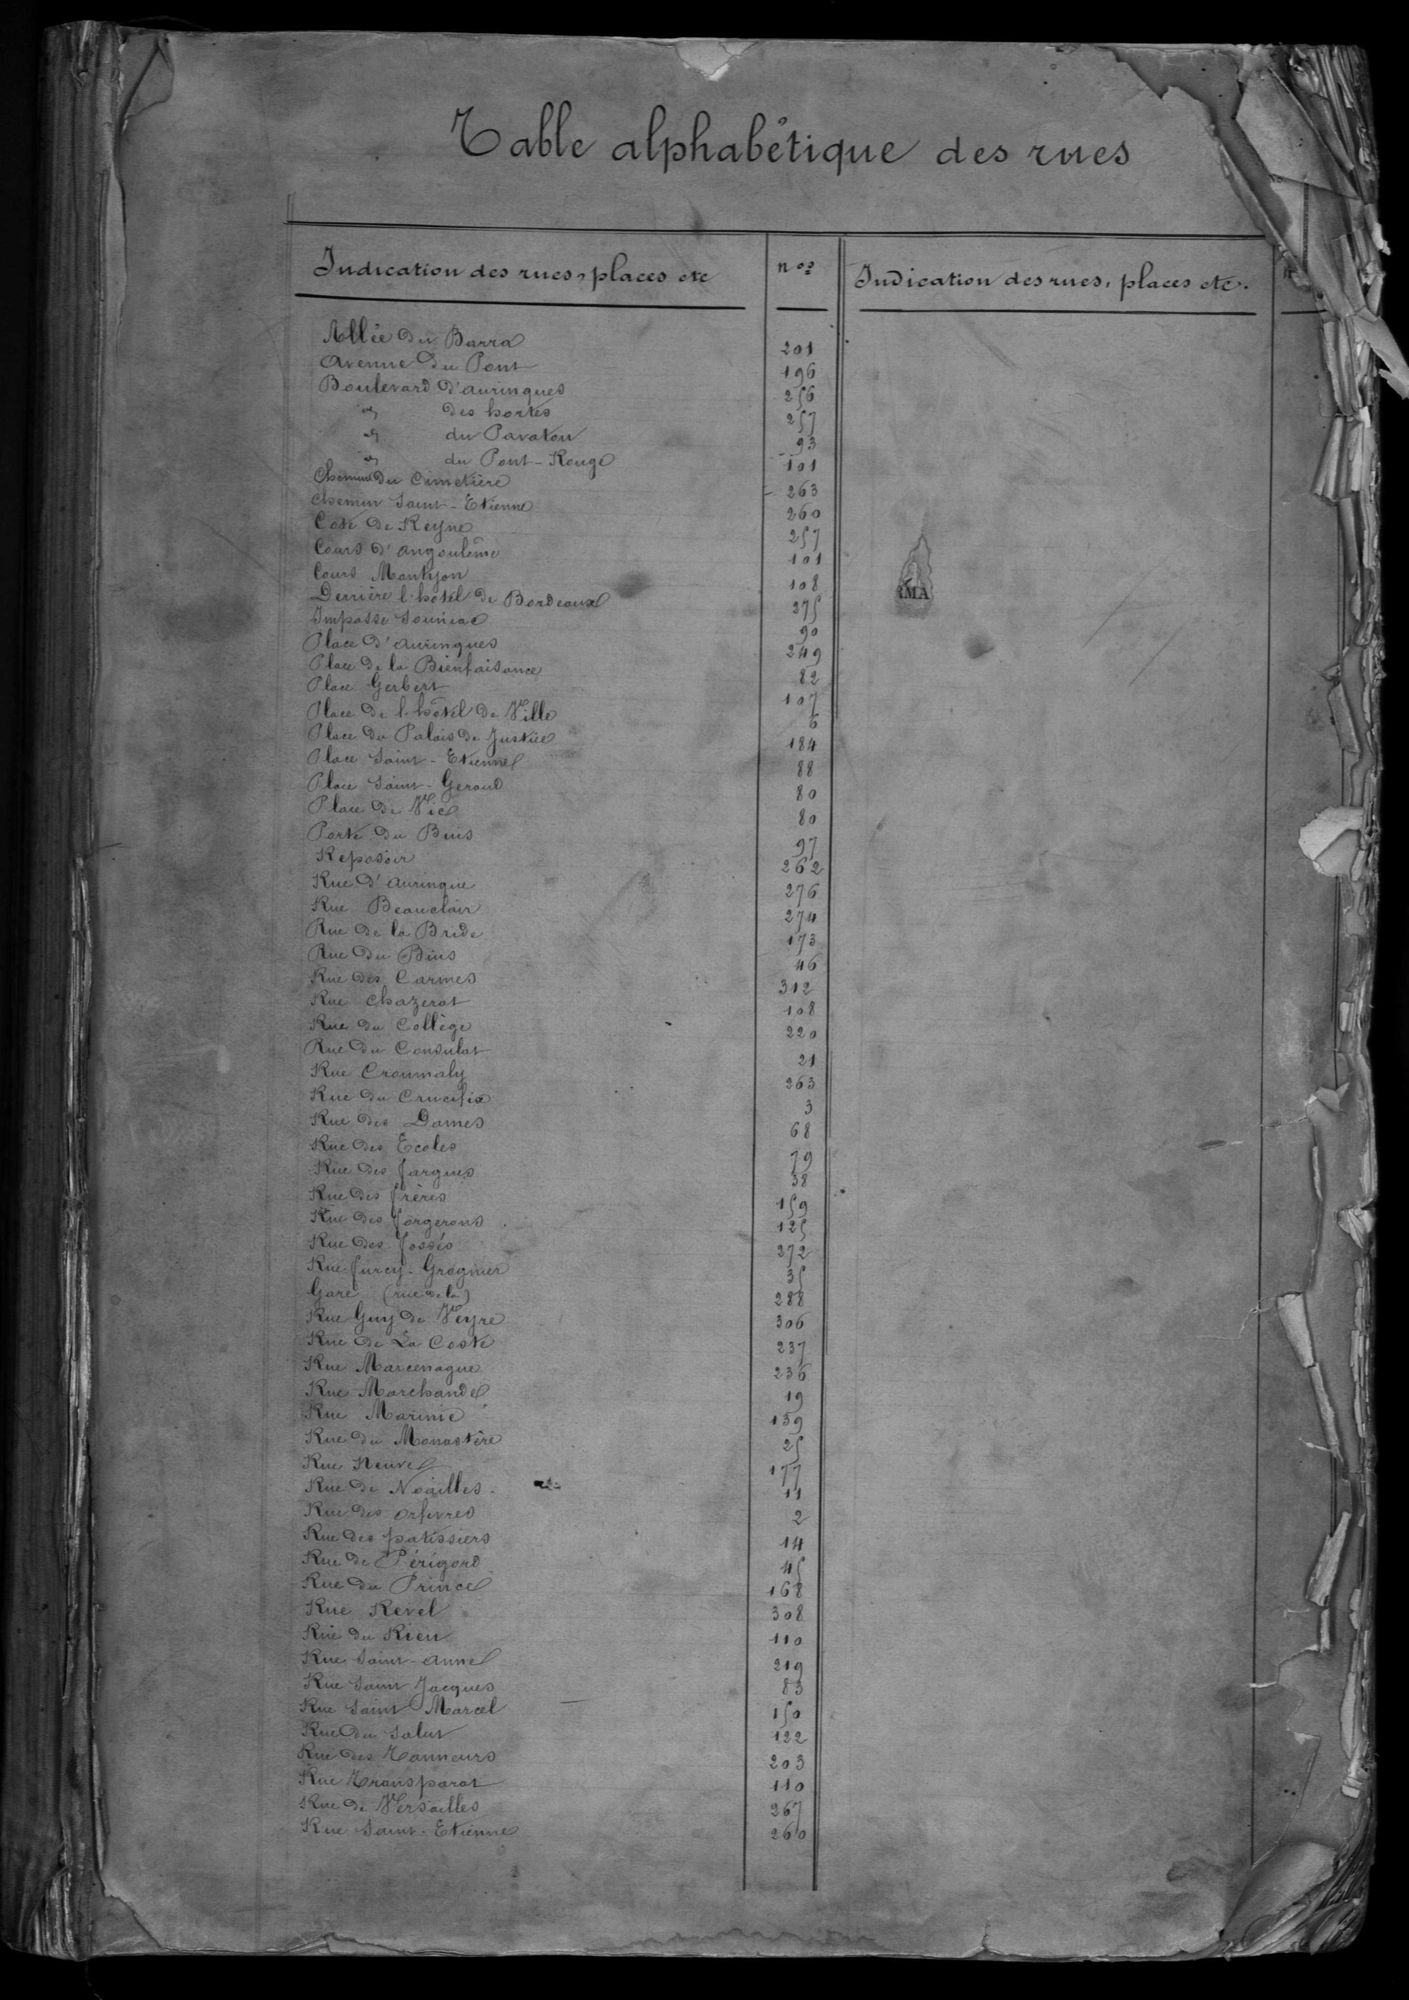 Table alphabétique des rues
Indication des rues, places etc nos Indication des rues, places etc.
RMA
Allée du Barra 201
Avenue du Pont 196
Boulevard d'aurinques 256
" des hortes 257
" du Pavatou 93
" du Pont-Rouge 101
Chemin du Cimetière 263
Chemin Saint-Etienne 260
Coté de Reyne 257
Cours d'angoulême 101
Cours Montyon 108
Derrière l'hotel de Bordeaux 275
Impasse Souniac 90
Place d'aurinques 249
Place de la Bienfaisance 82
Place Gerbert 107
Place de l'hôtel de Ville 6
Place du Palais de Justice 184
Place Saint-Etienne 88
Place Saint-Geraud 80
Place de Vic 80
Porte du Buis 97
Reposoir 262
Rue d'aurinque 276
Rue Beauclair 274
Rue de la Bride 173
Rue du Buis 46
Rue des Carmes 312
Rue Chazerat 108
Rue du Collège 220
Rue du Consulat 21
Rue Croumaly 263
Rue du Crucifix 3
Rue des Dames 68
Rue des Ecoles 79
Rue des fargues 38
Rue des frères 159
Rue des forgerons 125
Rue des fossés 272
Rue furcy-Grognier 35
Gare (rue de la) 288
Rue Guy de Veyre 306
Rue de La Coste 237
Rue Marcenague 236
Rue Marchande 19
Rue Marinie 139
Rue du Monastère 25
Rue Neuve 177
Rue de Noailles 11
Rue des orfevres 2
Rue des patissiers 14
Rue de Périgord 45
Rue du Prince 168
Rue Revel 308
Rue du Rieu 110
Rue Saint-Anne 219
Rue Saint Jacques 83
Rue Saint Marcel 150
Rue du Salut 122
Rue des Tanneurs 203
Rue Transparat 110
Rue de Versailles 267
Rue Saint-Etienne 260